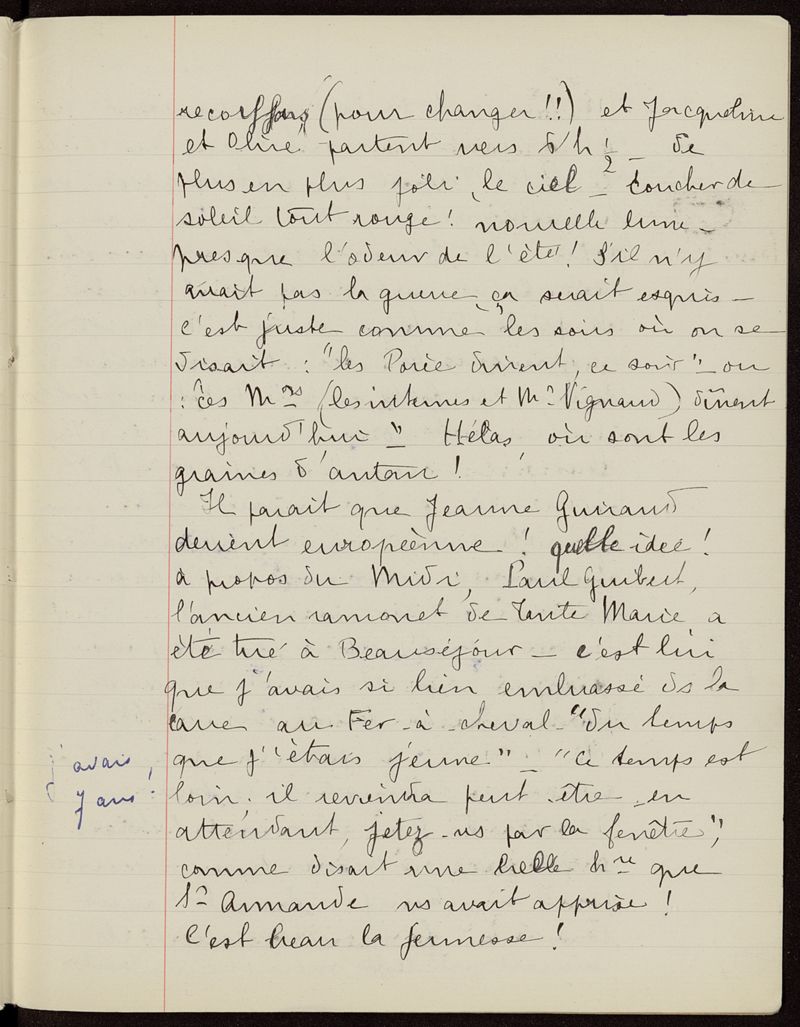 (pour changer !!) et Jacqueline
et Olive partent vers 5h ½ _ de
plus en plus joli, le ciel _ Coucher de
soleil tout rouge ! nouvelle lune _
presque l'odeur de l'été ! S'il n'y
avait pas la guerre, ça serait exquis _
c'est juste comme les soirs où on se
disait : "les Porée dînent, ce soir" _ ou
: "ces Mrs (les internes et Mr Vignaud) dînent
aujourd'hui _" Hélas, où sont les
graines d'antan !
Il paraît que Jeanne Guiraud
devient européenne ! quelle idée !
à propos du Midi, Paul Guibert,
l'ancien ramonet de Tante Marie a
été tué à Beauséjour _ c'est lui
que j'avais si bien embrassé ds la
cave au Fer-à-cheval "du temps
que j'étais jeune" _ "Ce temps est
loin, il reviendra peut-être, en
attendant, jetez-ns par la fenêtre",
comme disait une belle hre que
Sr Armande ns avait apprise !
C'est beau la jeunesse !
j'avais
7 ans !